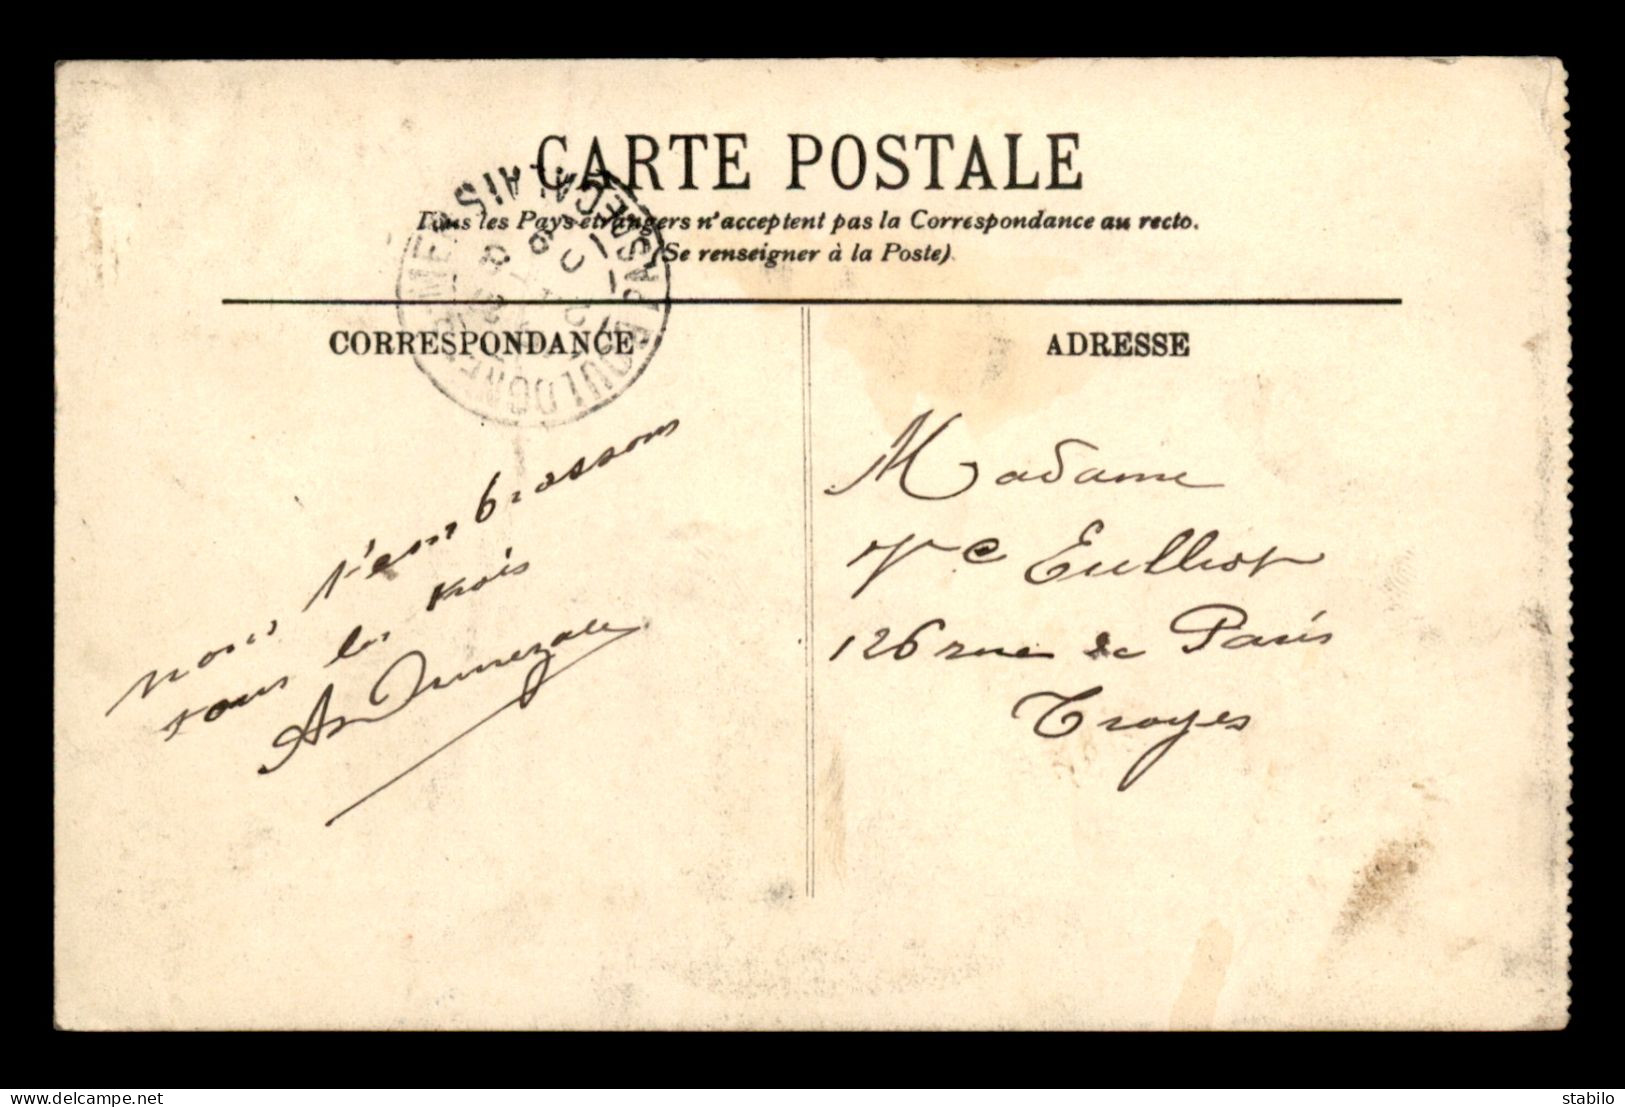 CARTE POSTALE
Tous les Pays étrangers n'acceptent pas la Correspondance au recto.
(Se renseigner à la Poste).
CORRESPONDANCE
ADRESSE
nous t'embrassons
tous les trois
Madame
Vve
126 rue de Paris
Troyes
https://www.delcampe.net
stabilo